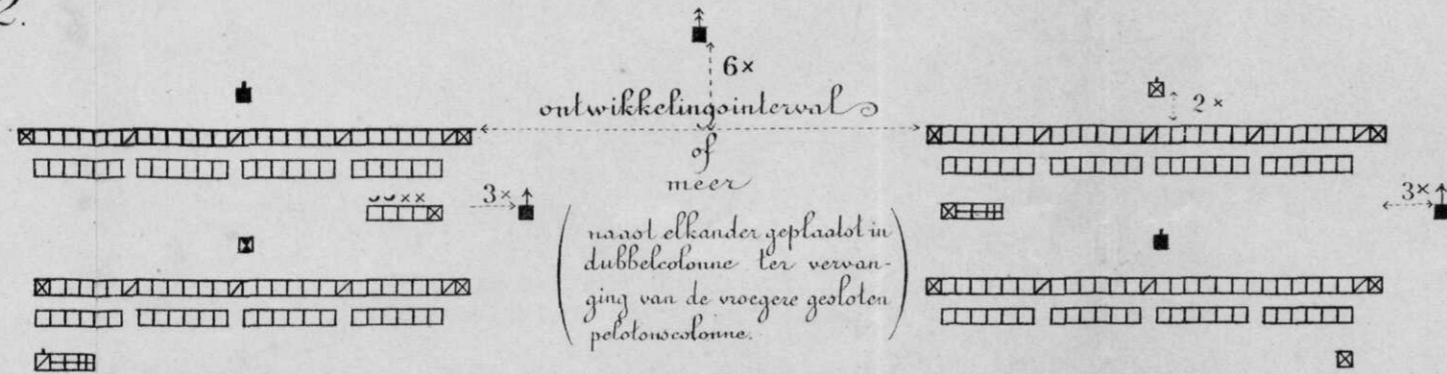 2.
6×
ontwikkelingsinterval
2×
of
meer
3×
3×
naast elkander geplaatst in
dubbelcolonne ter vervan-
ging van de vroegere gesloten
pelotonscolonne.